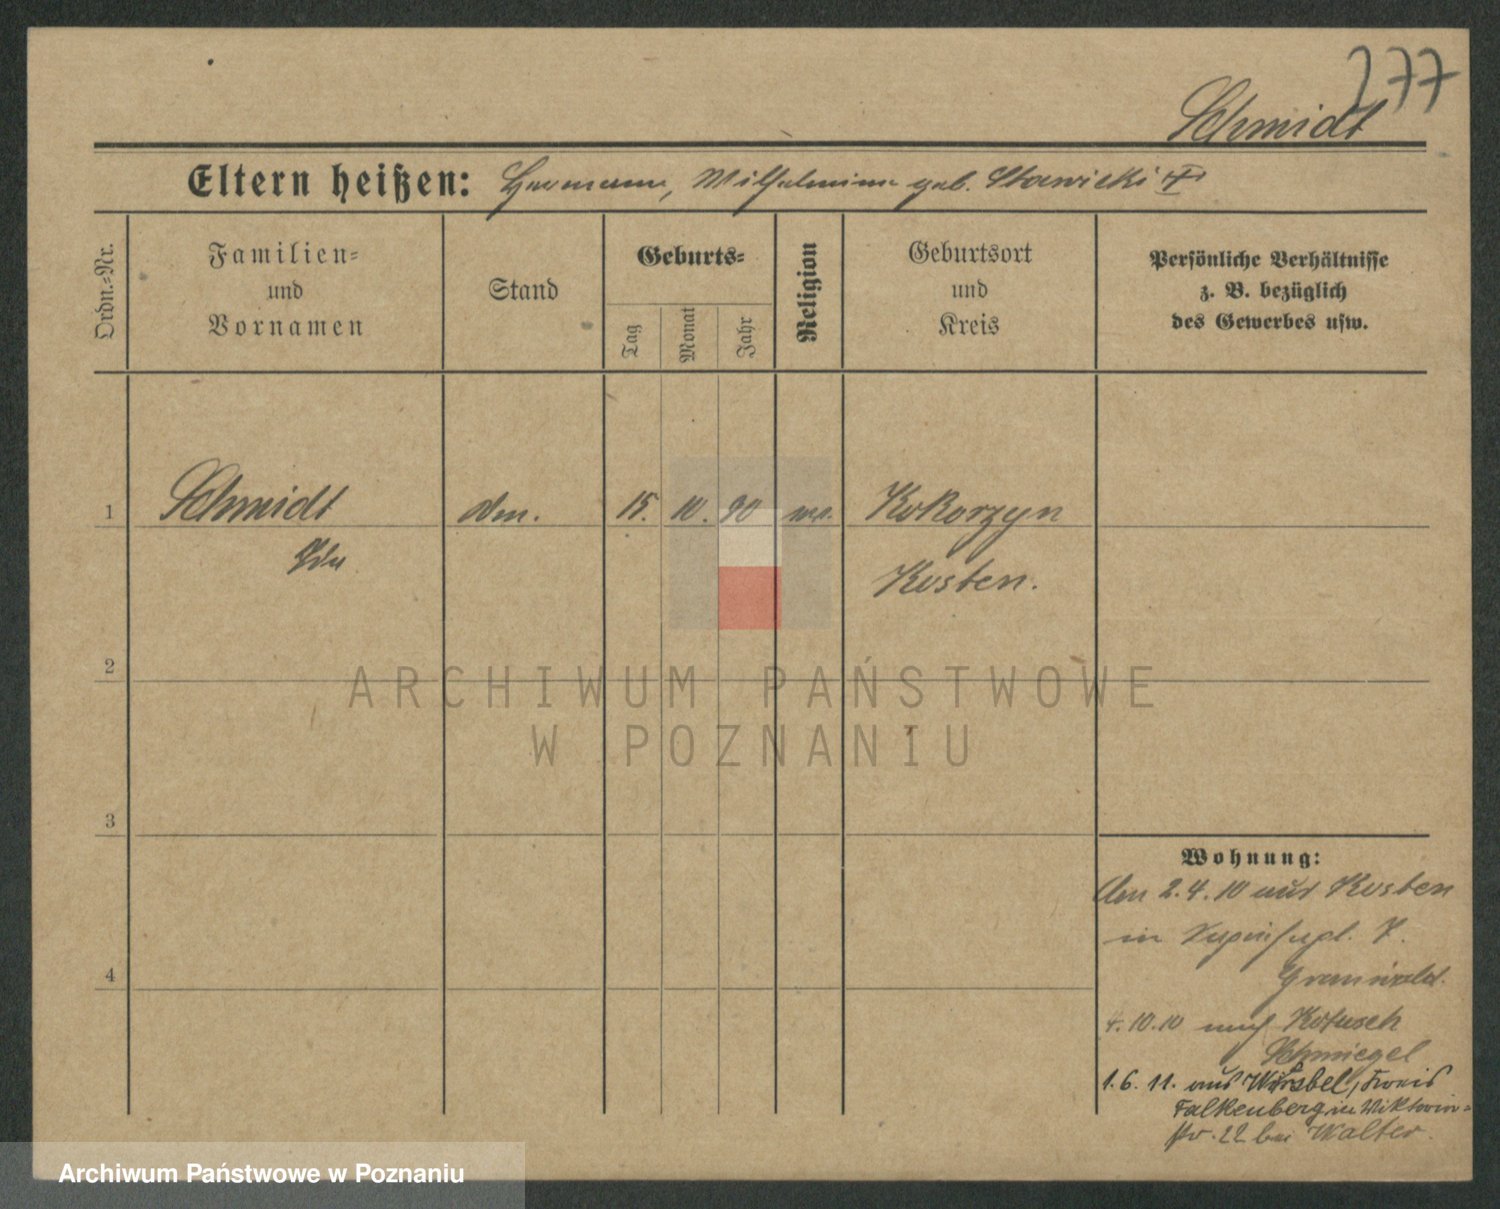 277
Schmidt
Eltern heißen: Hermann, Wilhelmine geb. Stawicki
Ordn.-Nr.
Familien-
und
Vornamen
Stand
Geburts-
Tag
Monat
Jahr
Religion
Geburtsort
und
Kreis
Persönliche Verhältnisse
z. B. bezüglich
des Gewerbes usw.
1 Schmidt 15. 10. 90 Kokorzyn
Ida
Kosten.
2
3
4
Wohnung:
Am 2.4.10 aus Kosten
in
Grunwald.
4.10.10 nach Kotusch
Schmiegel
1.6.11. aus Kreis
Falkenberg in Viktoria-
str. 22 bei Walter.
ARCHIWUM PAŃSTWOWE
W POZNANIU
Archiwum Państwowe w Poznaniu